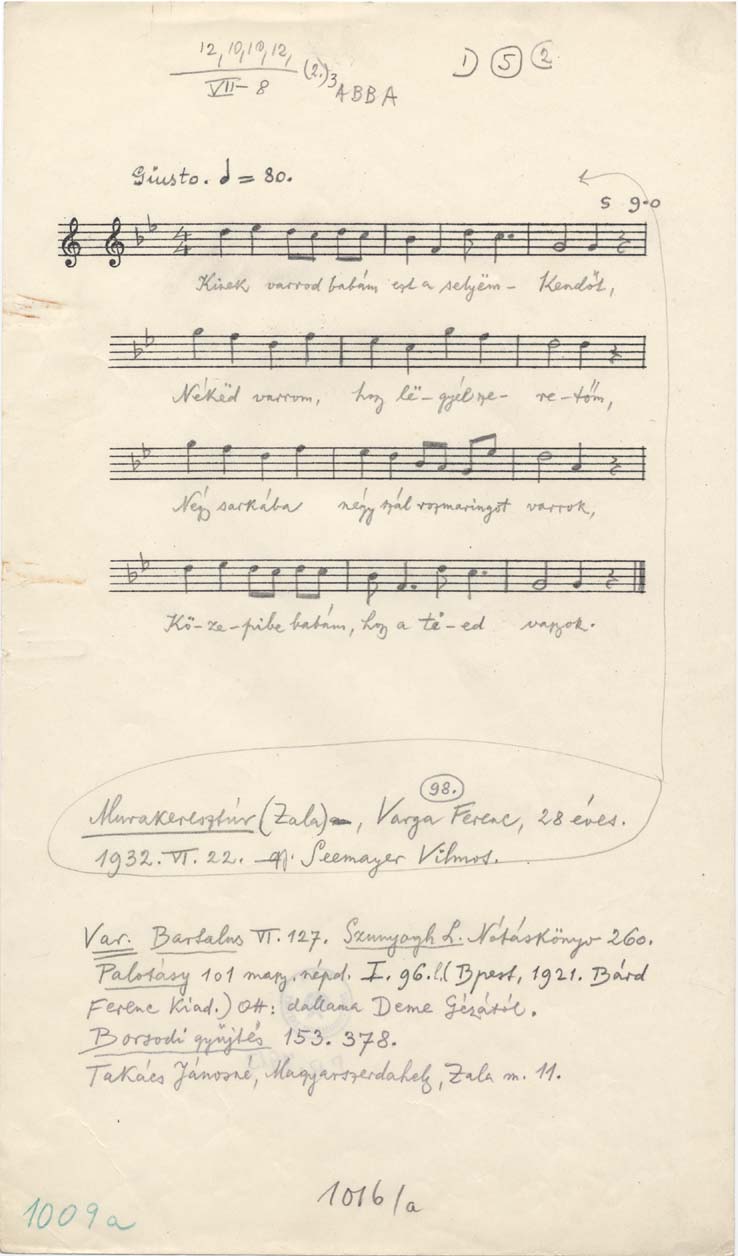 12, 10, 10, 12,
VII – 8 (2.)3 ABBA
D 5 2
Giusto. = 80.
5 9-0
4 4
Kinek varrod babám ezt a selyëm- Kendőt,
Nékëd varrom, hogy lë-gyél sze- re-tőm,
Négy sarkába négy szál rozmaringot varrok,
Kö-ze-pibe babám, hogy a të-ed vagyok.
98.
Murakeresztúr (Zala), Varga Ferenc, 28 éves.
1932. VI. 22. Seemayer Vilmos.
Var. Bartalus VI. 127. Szunyogh L. Nótáskönyv 260.
Palotásy 101 magy. népd. I. 96.l. (Bpest, 1921. Bárd
Ferenc Kiad.) Ott: dallama Deme Gézától.
Borsodi gyűjtés 153. 378.
Takács Jánosné, Magyarszerdahely, Zala m. 11.
1016/a
1009a